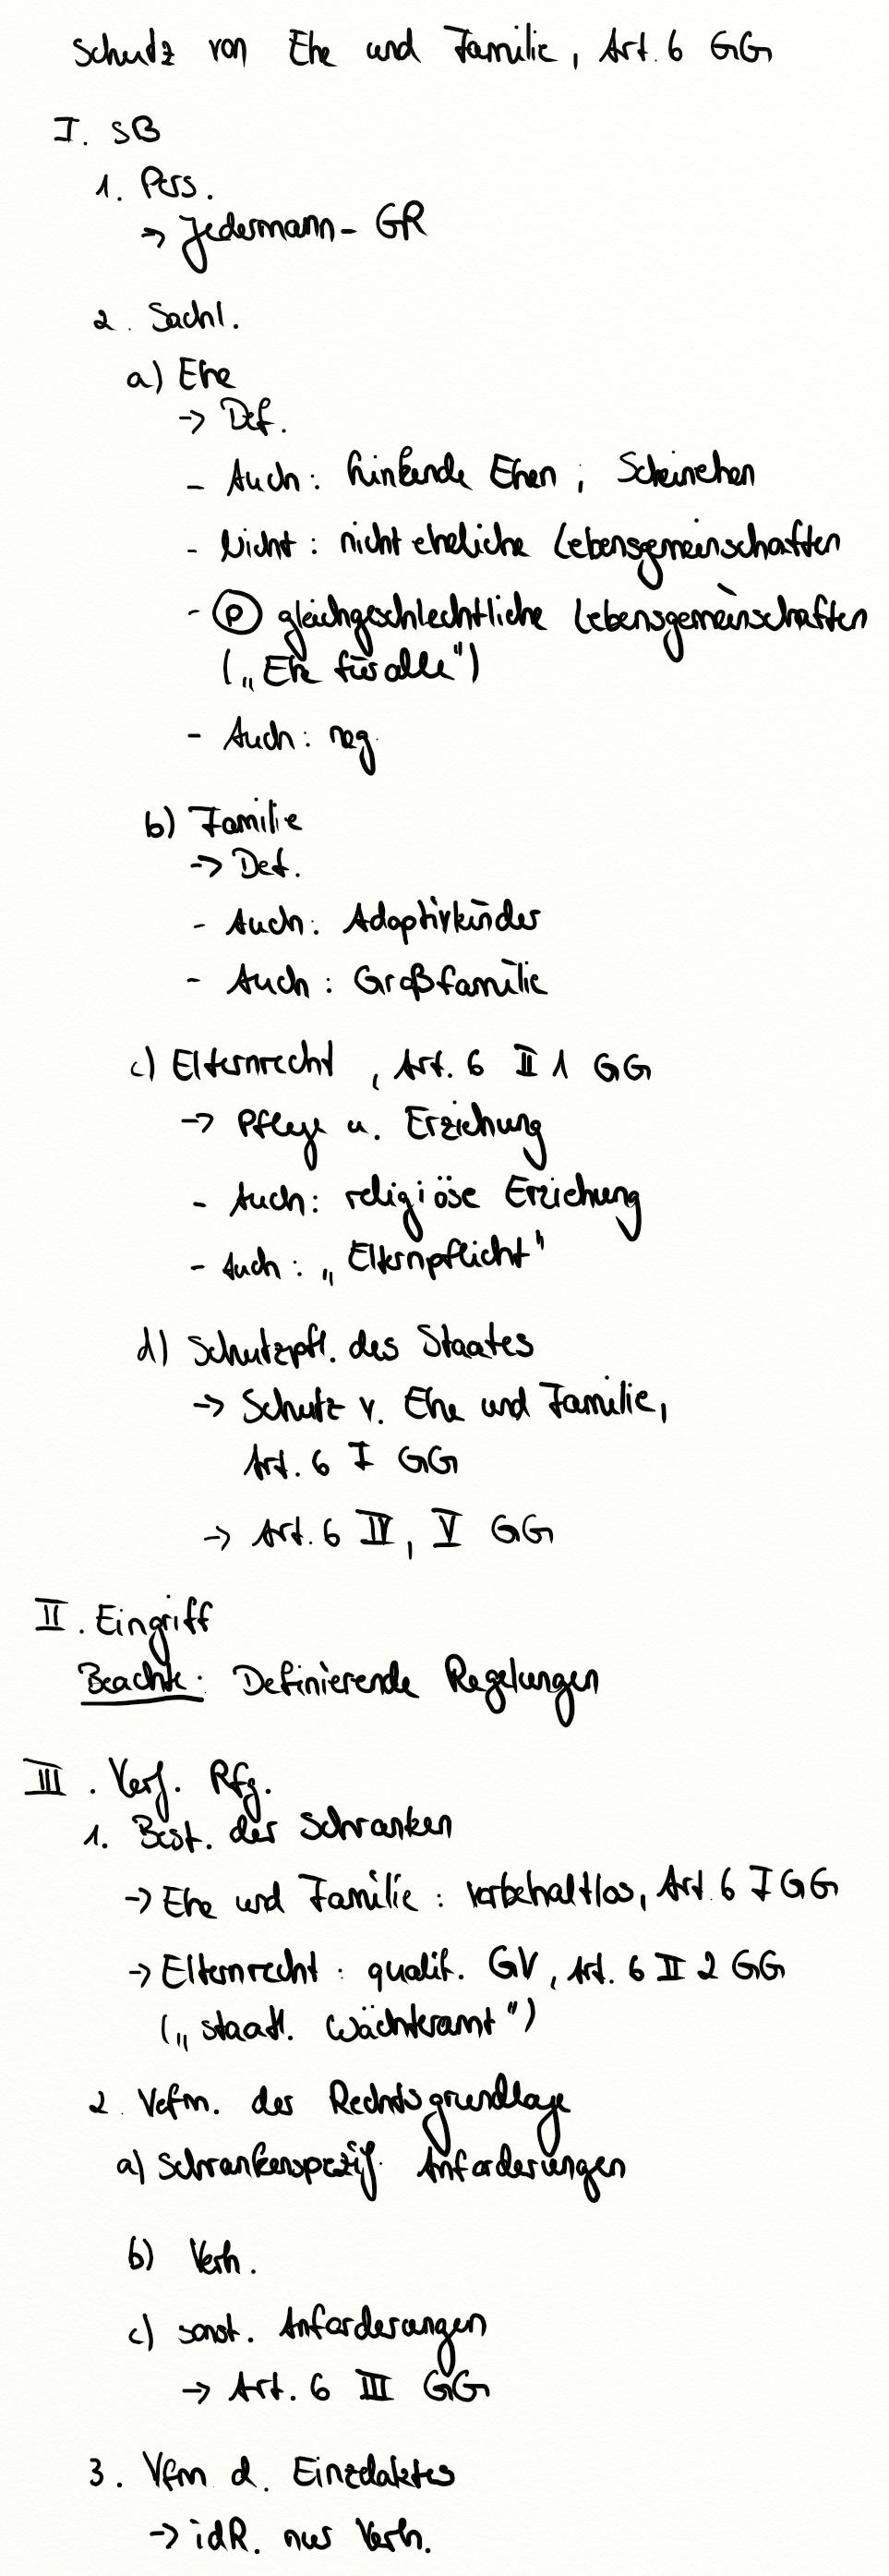 Schutz von Ehe und Familie, Art. 6 GG
I. SB
1. Pers.
→ Jedermann-GR
2. Sachl.
a) Ehe
→ Def.
- Auch: hinkende Ehen, Scheinehen
- Nicht: nicht eheliche Lebensgemeinschaften
- (P) gleichgeschlechtliche Lebensgemeinschaften
(„Ehe für alle")
- Auch: neg.
b) Familie
→ Def.
- Auch: Adoptivkinder
- Auch: Großfamilie
c) Elternrecht, Art. 6 II 1 GG
→ Pflege u. Erziehung
- Auch: religiöse Erziehung
- Auch: „Elternpflicht"
d) Schutzpfl. des Staates
→ Schutz v. Ehe und Familie,
Art. 6 I GG
→ Art. 6 IV, V GG
II. Eingriff
Beachte: Definierende Regelungen
III. Verf. Rfg.
1. Best. der Schranken
→ Ehe und Familie: vorbehaltlos, Art. 6 I GG
→ Elternrecht: qualif. GV, Art. 6 II 2 GG
(„staatl. Wächteramt")
2. Vefm. der Rechtsgrundlage
a) Schrankenspezif. Anforderungen
b) Verh.
c) sonst. Anforderungen
→ Art. 6 III GG
3. Vfm d. Einzelaktes
→ idR. nur Verh.